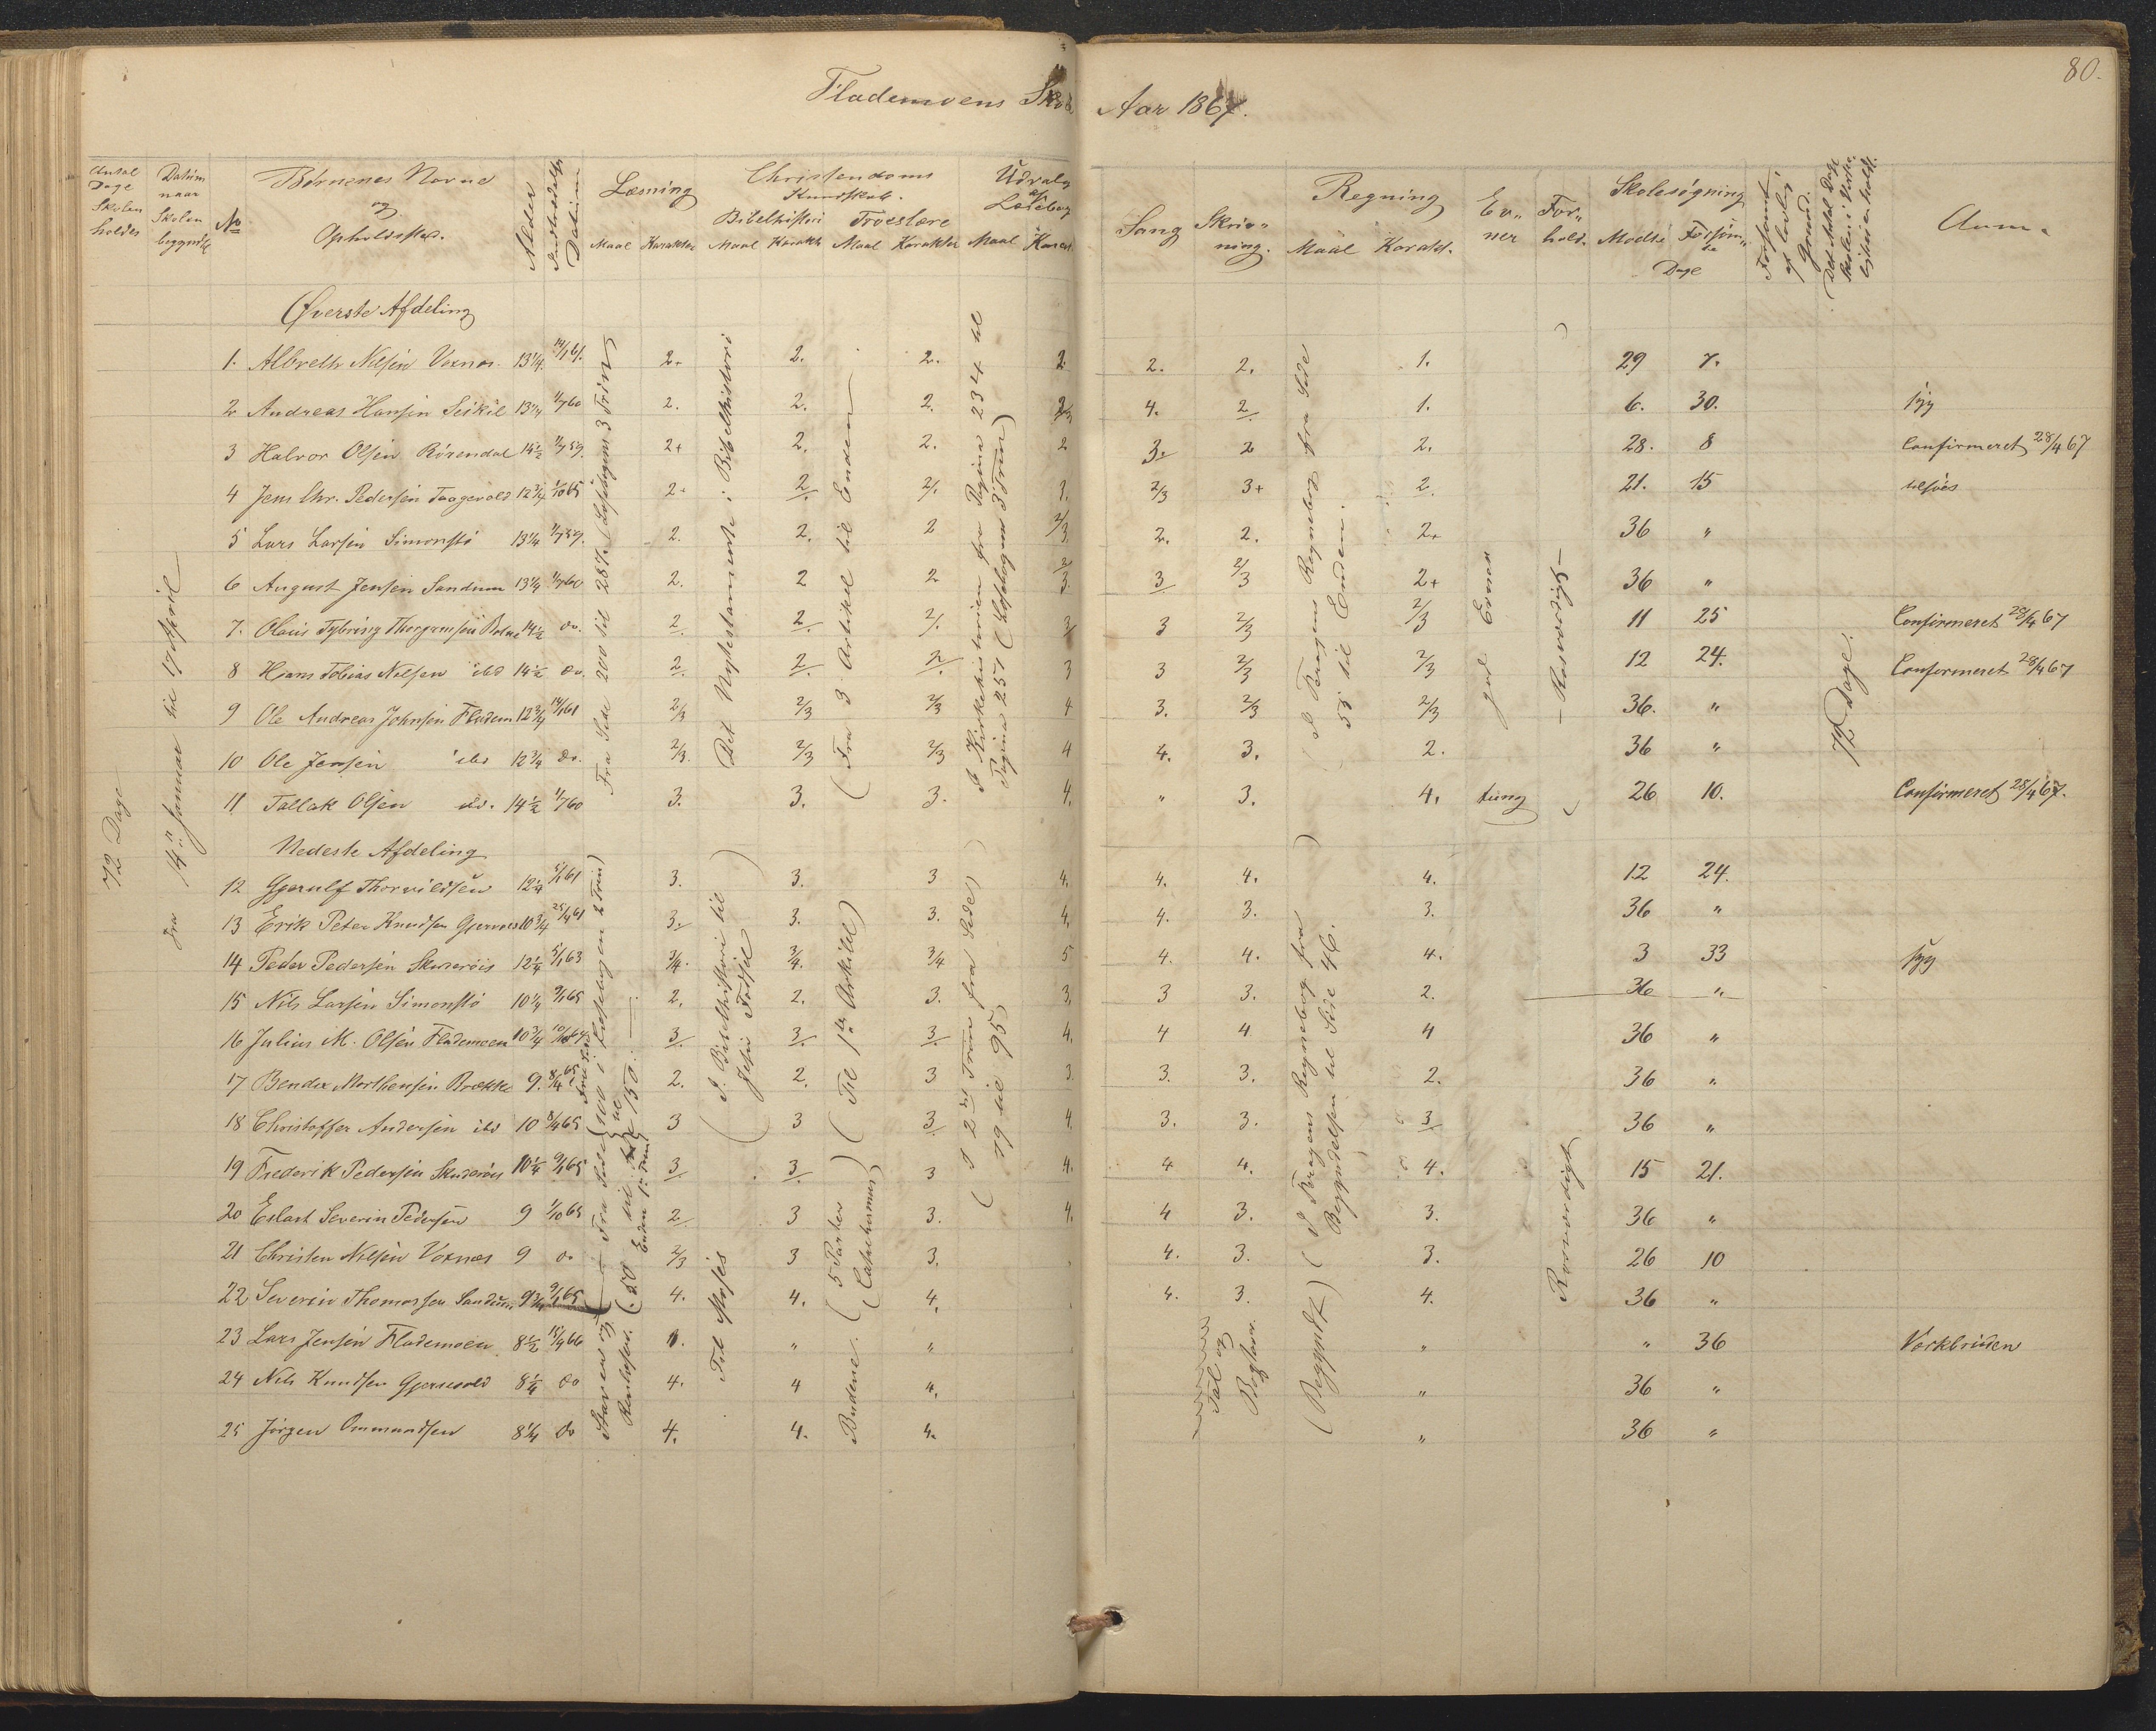 80.
Flademoens Skole Aar 1867.
Antal Dage Skolen holdes
Datum naar Skolen begyndte
No
Børnenes Navne og Opholdssted.
Alder
Indtrædelses Datum
Læsning
Maal Karakter
Christendoms Kundskab.
Bibelhistori Troeslære
Maal Karakt Maal Karakter
Udvalg af Læsebog
Maal Karact
Sang
Skrivning.
Regning
Maal Karakt.
Evner
Forhold.
Skolesøgning
Mødte Forsømte
Dage
Forsømt af lovlig Grund.
Det Antal Dage Skolen i Virke
Anm.
72 Dage
fra 14de Januar til 17 April
Øverste Afdeling
1. Albreth Nilsen Voxnæs. 13 1/4. 14/1 61. 2+ 2. 2. 2. 2. 2. 1. 29 7.
2 Andreas Hansen Seikil 13 1/4 1/7 60 2. 2. 2. 2/3 4. 2 1. 6. 30. syg
3 Halvor Olsen Rörendal 14 1/2 1/7 59. 2+ 2. 2. 2 3. 2 2. 28. 8 Confirmeret 28/4 67
4 Jens Chr. Pedersen 12 3/4 1/10 65 2+ 2. 2/. 1. 2/3 3+ 2. 21. 15
5 Lars Larsen Simonstö 13 1/4 1/7 59. 2. 2. 2 2/3 2. 2. 2+ 36 "
6 August Jensen Sandum 13 1/4 1/7 60 2. 2 2 2/3. 3 2/3 2+ 36 "
7. Olaus Tybring 14 1/2 do. 2. 2. 2/. 3 3 2/3 2/3 11 25 Confirmeret 28/4 67
8 Hans Tobias Nilsen ibd 14 1/2 do. 2. 2. 2. 3 3 2/3 2/3 12 24. Confirmeret 28/4 67
9 Ole Andreas Johnsen Fladem 12 3/4 14/1 61 2/3 2/3 2/3 4 3. 2/3 2/3 36. "
10 Ole Jensen ibd 12 3/4 do. 2/3. 2/3 2/3 4 4. 3. 2. 36 "
11 Tallak Olsen ibd. 14 1/2 1/7 60 3. 3. 3. 4. " 3. 4. tung 26 10. Confirmeret 28/4 67.
Fra Side 200 til 287. Læsebogens 3 Trin
Det Nytestamente i Bibelhistori
(Fra 3 Artikel til Enden
I Kirkehistorien fra Pagina 234 til Pagina 257 (Læsebogens 3 Trin)
(I Faragens Regnebog fra Side 55 til Enden.
god Evner
- Rosværdigt -
72 Dage.
Nedeste Afdeling
12 Gjerulf Thorvildsen 12 1/4 5/1 61 3. 3. 3 4. 4. 4. 4. 12 24.
13 Erik Peter Knudsen 10 3/4 25/4 61 3. 3. 3. 4. 4. 3. 3. 36 "
14 Peder Pedersen Skuderöis 12 1/4 5/1 63 3/4. 3/4. 3/4 5 4. 4. 4. 3 33 syg
15 Nils Larsen Simonstö 10 1/4 9/1 65 2. 2. 3. 3. 3 3. 2. 36 "
16 Julius M. Olsen Flademoen 10 3/4 10/10 64 3. 3. 3. 4. 4 4 4 36 "
17 Bendix Morthensen Brække 9. 8/4 65 2. 2. 3 3. 3. 3. 2. 36 "
18 Christoffer Andersen ibd 10 8/4 65 3 3 3 4. 3. 3. 3 36 "
19 Frederik Pedersen Skuderöis 10 1/4 9/1 65 3 3 3 4. 4 4. 4. 15 21.
20 Eilart Severin Pedersen 9 1/10 65 2 3 3. 4. 4 3. 3. 36 "
21 Christen Nilsen Voxnæs 9 do 2/3 3 3. 4. 3. 3. 26 10
22 Severin Thomassen Sandum 9 3/4 9/1 65 4. 4. 4. 4. 3. 4. 36 "
23 Lars Jensen Flademoen 8 1/2 15/4 66 " " " " 36 Værkbruden
24 Nils Knudsen 8 1/4 do 4. 4 4. " 36 "
25 Jörgen Ommundsen 8 1/4 do 4. 4. 4. " 36 "
Fra Side 100 i Læsebogen 2 Trin)
til 150.
Enden 1ste Trin
Staver og
(I Bibelhistori til Jesu Fødsel
Til Moses
(Til 1ste Artikel)
(5 Parter Catechismus)
Budene.
(I 2det Trin fra Side) 79 til 95)
Tal og Bogstaver.
(I Faragens Regnebog fra Begyndelsen til Side 46.
(Begyndt)
Rosværdigt